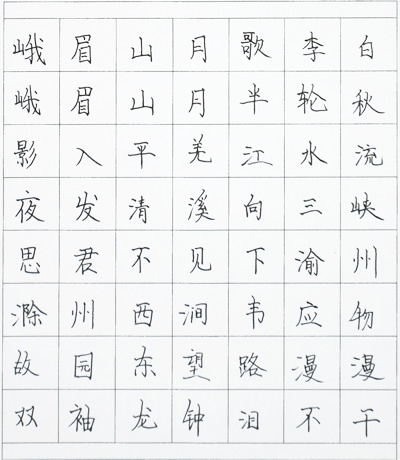 峨眉山月歌李白
峨眉山月半轮秋
影入平羌江水流
夜发清溪向三峡
思君不见下渝州
滁州西涧韦应物
故园东望路漫漫
双袖龙钟泪不干